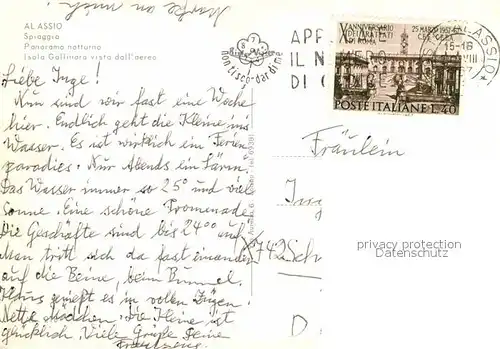 ALASSIO
Spiaggia
Panorama notturno
Isola Gallinara vista dall'aereo
Liebe Inge!
Nun sind wir fast eine Woche
hier. Endlich geht die Kleine ins
Wasser. Es ist wirklich ein Ferien
paradies. Nur Abends ein Lärm.
Das Wasser immer so 25° und viel
Sonne. Eine schöne Promenade
Die Geschäfte sind bis 24⁰⁰ auf
Man tritt sich da fast einander
auf die Beine, beim Bummel.
Klaus genießt es in vollen Zügen.
Nette Mädchen. Die Kleine ist
glücklich. Viele Grüße Deine
non cisco-dar di mè
X ANNIVERSARIO
DEI TRATTATI
DI ROMA
25 MARZO 1957
POSTE ITALIANE L. 40
IL N
DI
ALASSIO
15-16
Fräulein
Ing
7742 Sch
D
privacy protection
Datenschutz